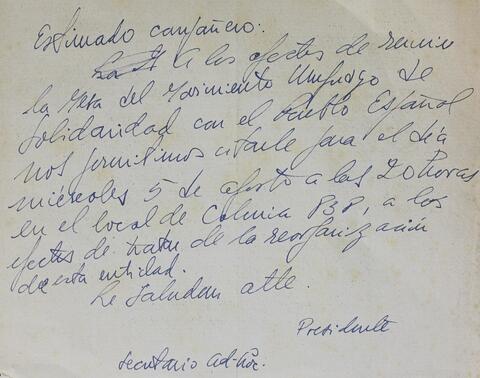 Estimado compañero:
A los efectos de reunir
la mesa del Movimiento Uruguayo de
Solidaridad con el Pueblo Español
nos permitimos citarle para el día
miércoles 5 de agosto a las 20 horas
en el local de Colonia, a los
efectos de tratar de la reorganización
de esta entidad.
Le saludan atte.
Presidente
Secretario ad-hoc.